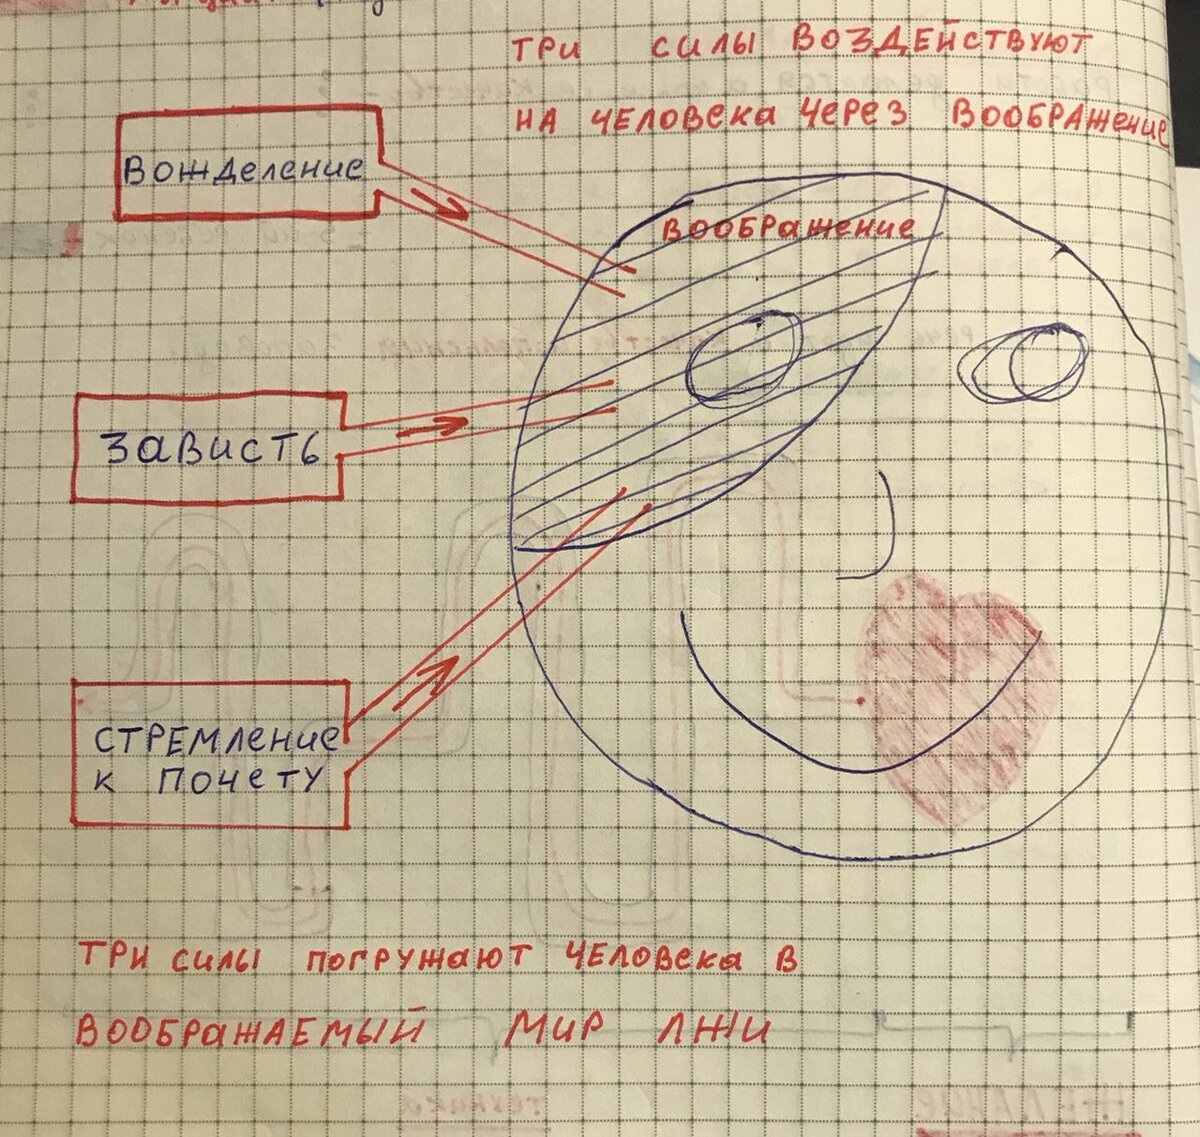 ТРИ СИЛЫ ВОЗДЕЙСТВУЮТ
НА ЧЕЛОВЕКА ЧЕРЕЗ ВООБРАЖЕНИЕ
ВОЖДЕЛЕНИЕ
ВООБРАЖЕНИЕ
ЗАВИСТЬ
СТРЕМЛЕНИЕ
К ПОЧЕТУ
ТРИ СИЛЫ ПОГРУЖАЮТ ЧЕЛОВЕКА В
ВООБРАЖАЕМЫЙ МИР ЛЖИ